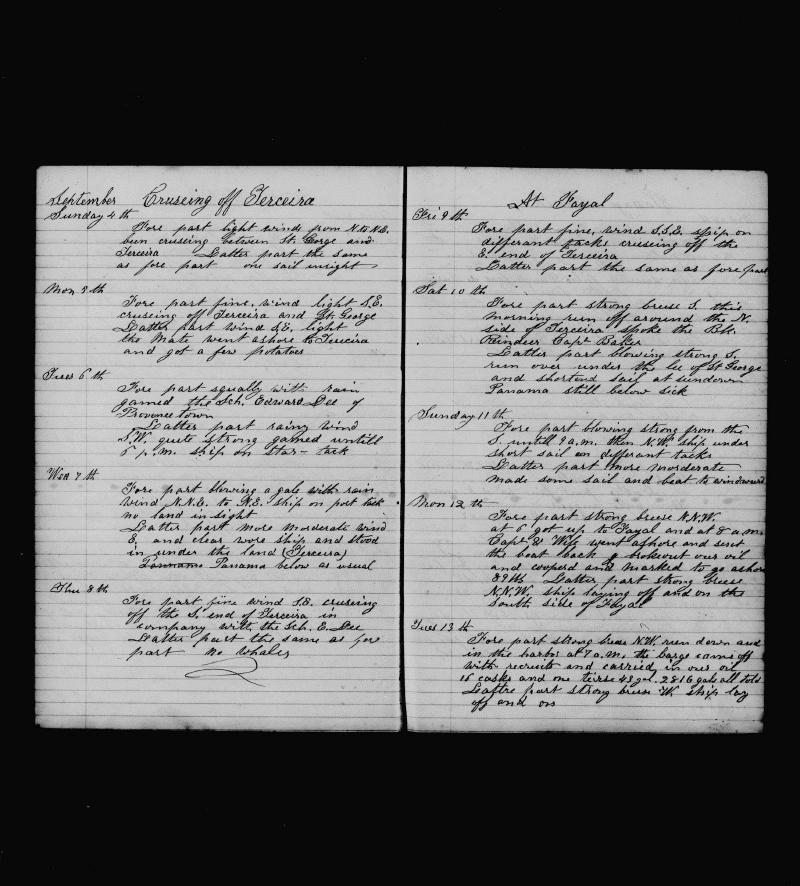 September Cruseing off Terceira
Sunday 4th
Fore part light winds from N. to N.E.
ben cruseing between St. Gorge and
Terceira Latter part the same
as fore part one sail insight
Mon 5th
Fore part fine, wind light S.E.
cruseing off Terceira and St. George
Latter part wind S.E. light
the Mate went ashore to Terceira
and got a few potatoes
Tues 6th
Fore part squally with rain
gamed the Sch. Edward Lee of
Provence town
Latter part rainy wind
S.W. quite strong gamed untill
5 p.m. ship on star- tack
Wed 7th
Fore part blowing a gale with rain
wind N.N.E. to N.E. ship on port tack
no land in sight
Latter part more morderate wind
E. and clear wore ship and stood
in under the land (Terceira)
Panama below as usual
Thu 8th
Fore part fine wind S.E. cruseing
off the S. end of Terceira in
company with the Sch. E. Lee
Latter part the same as fore
part no whales
At Fayal
Fri 9th
Fore part fine, wind S.S.E. ship on
differant tacks cruseing off the
E. end of Terceira
Latter part the same as fore part
Sat 10th
Fore part strong breese S. this
morning run off around the N.
side of Terceira spoke the Bk.
Reindeer Capt Baker
Latter part blowing strong S.
run over under the lee of St George
and shortend sail at sundown
Panama still below sick
Sunday 11th
Fore part blowing strong from the
S. untill 9 a.m. then N.W. ship under
short sail on differant tacks
Latter part more morderate
made some sail and beat to windward
Mon 12th
Fore part strong breese N.N.W.
at 6 got up to Fayal and at 8 a.m.
Capt & Wife went ashore and sent
the boat back & brokeout our oil
and cooperd and marked to go ashore
89bb Latter part strong breese
N.N.W. ship laying off and on the
South side of Fayal
Tues 13th
Fore part strong breese N.W. run down and
in the harbor at 7 a.m. the barge came off
with recruits and carried in our oil
16 casks and one teirse 43 gal. 2816 gals all told
Laftre part strong breese W. ship lay
off and on